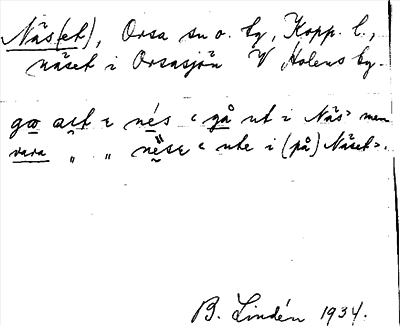 Näs(et), Orsa sn o. by, Kopp. l.,
näset i Orsasjön V Holens by.
gɷ ɑ̣ɩt ɛ nés ‹gå ut i Näs› men
vara „ „ nësɛ ‹ute i (på) Näset›.
B. Lindén 1934.